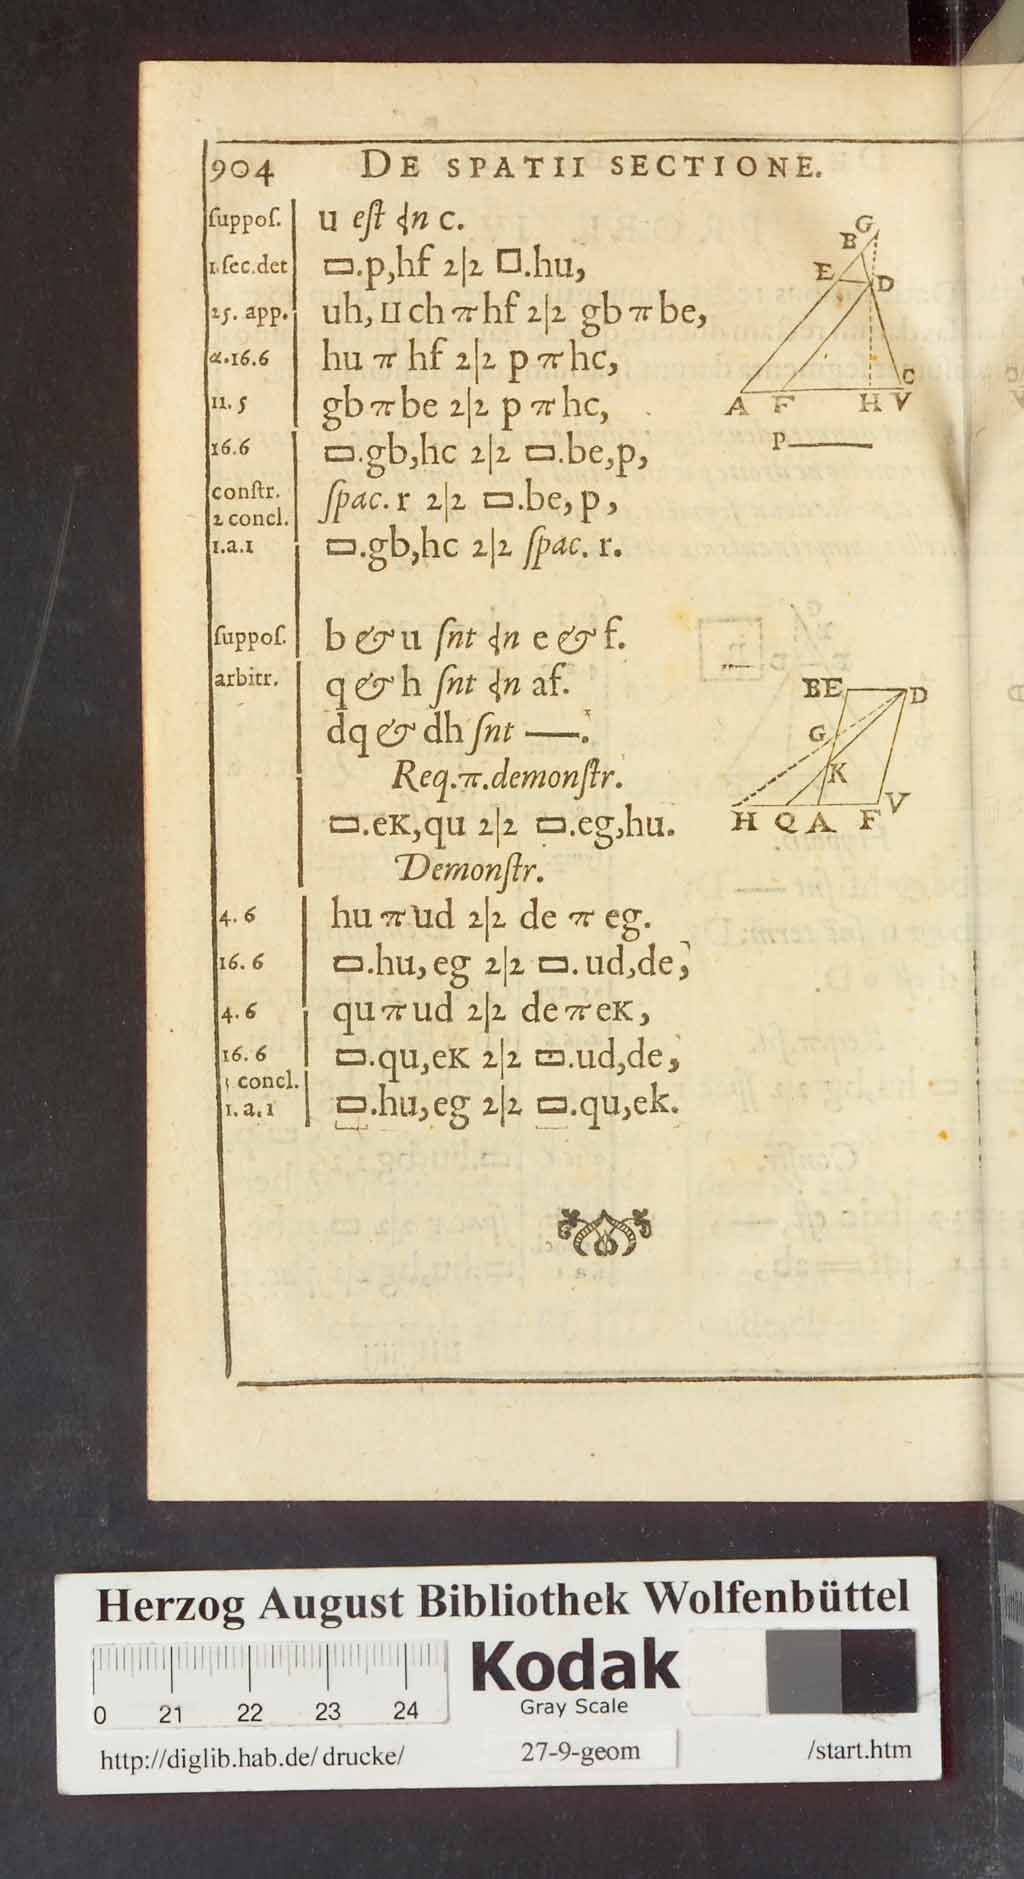 904 DE SPATII SECTIONE.
suppos. u est in c.
1. sec. det ▭.p,hf 2|2 □.hu,
25. app. uh, ⊔ ch π hf 2|2 gb π be,
α.16.6 hu π hf 2|2 p π hc,
11. 5 gb π be 2|2 p π hc,
16.6 ▭.gb,hc 2|2 ▭.be,p,
constr.
2 concl. spac. r 2|2 ▭.be,p,
1.a.1 ▭.gb,hc 2|2 spac. r.
suppos. b & u snt in e & f.
arbitr. q & h snt in af.
dq & dh snt —.
Req.π.demonstr.
▭.eK,qu 2|2 ▭.eg,hu.
Demonstr.
4. 6 hu π ud 2|2 de π eg.
16. 6 ▭.hu,eg 2|2 ▭.ud,de,
4. 6 qu π ud 2|2 de π eK,
16. 6 ▭.qu,eK 2|2 ▭.ud,de,
concl.
1. a. 1 ▭.hu,eg 2|2 ▭.qu,ek.
G
B
E D
C
A F H V
P
BE D
G
K
V
H Q A F
Herzog August Bibliothek Wolfenbüttel
Kodak
Gray Scale
0 21 22 23 24
http://diglib.hab.de/drucke/ 27-9-geom /start.htm